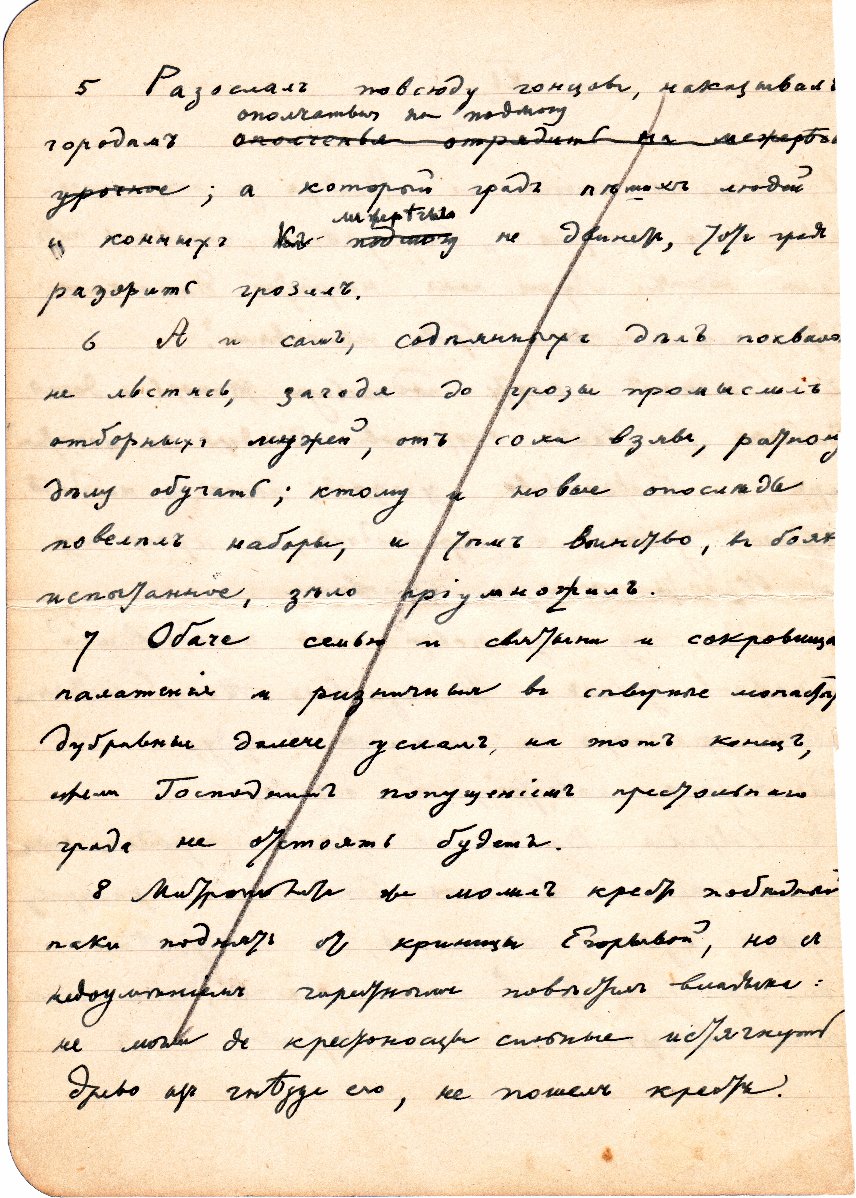 5 Разослалъ повсюду гонцовъ, наказывалъ
ополчаться на подмогу
городамъ ополченья отрядить на
урочное; а который градъ пѣшихъ людей
и конныхъ къ подмогу не двинетъ, тотъ градъ
разорить грозилъ.
6 А и самъ, содѣянныхъ дѣлъ похвалой
не льстясь, загодя до грозы промыслилъ
отборныхъ мужей, отъ сохи взявъ, ратному
дѣлу обучать; ктому и новые опослѣдь
повелѣлъ наборы, и тѣмъ воинство, въ бояхъ
испытанное, зѣло пріумножилъ.
7 Обаче семью и святыни и сокровища
палатенныя и ризничныя въ сѣверные монастыри
дубравные далече услалъ, на тотъ конецъ,
ежели Господнимъ попущеніемъ престольнаго
града не отстоять будетъ.
8 Митрополитъ же молилъ крестъ побѣдный
паки поднять отъ криницы Егорьевой, но съ
недоумѣніемъ повѣстилъ владыка:
не могли де крестоносцы сильные истягнуть
древо изъ гнѣзда его, не пошелъ крестъ.